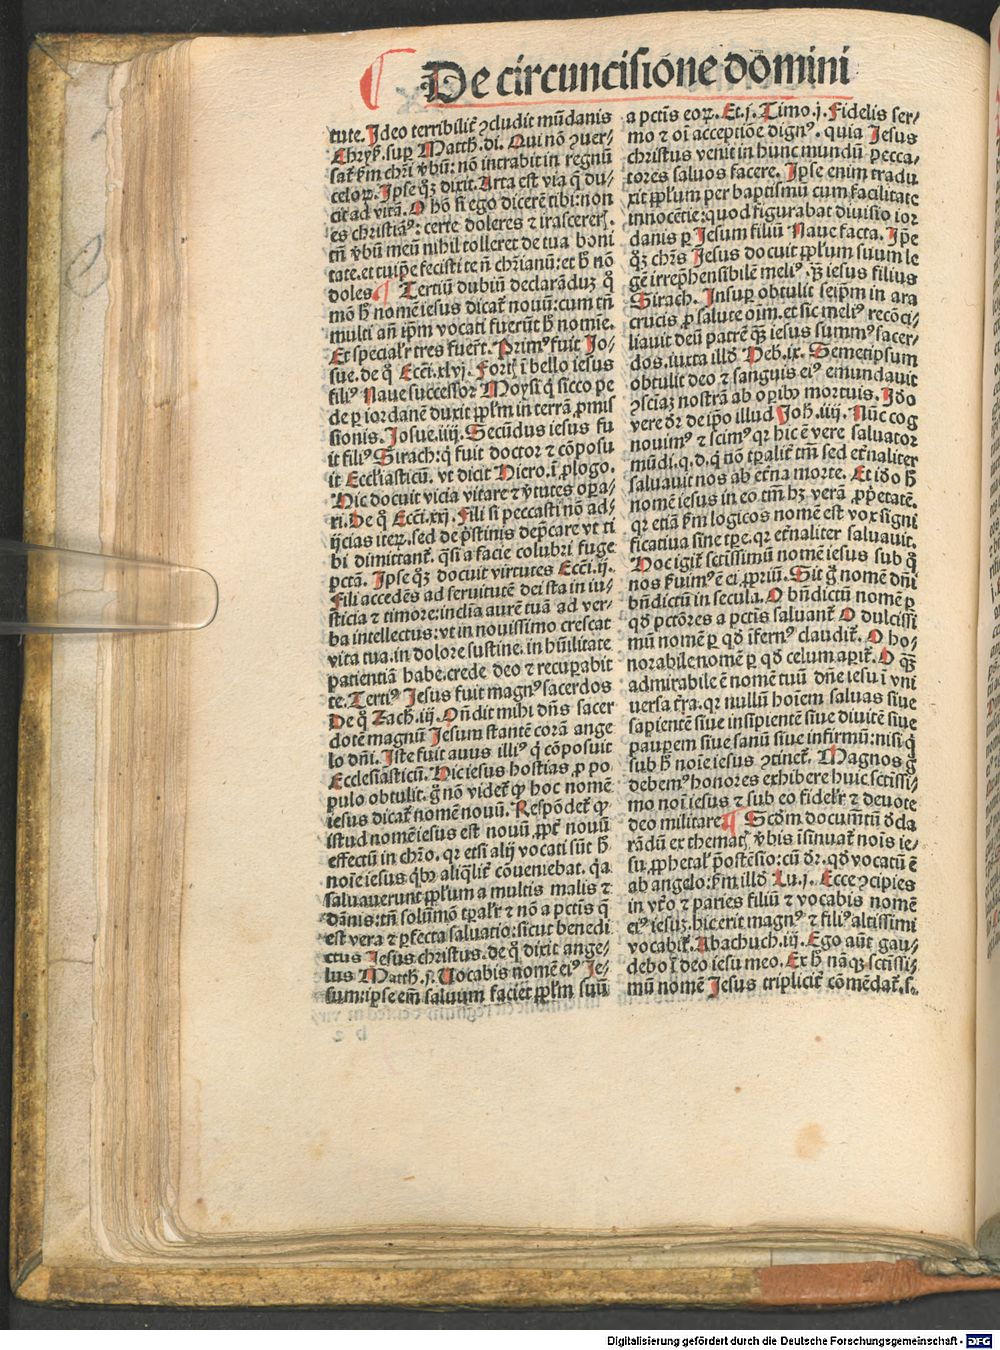 De circuncisione dōmini
tute. Ideo terribilit̃ ꝯcludit mūdanis
Chryſ. sup Matth. di. Qui nō ꝯuer⸗
sat̃ ẜm chr̄i v̓bū: nō intrabit in regnū
celoꝝ. Ipse qꝫ dixit. Arta est via q̄ du⸗
cit ad vitā. O hō si ego dicerē tibi: non
es christianꝰ: certe doleres ⁊ irascereris.
tñ v̓bū meū nihil tolleret de tua boni
tate. et tuip̄e fecisti te nō chr̄ianū: et h̄ nō
doles ¶ Tertiū dubiū declarādū ꝫ qͦ
mō h̄ nomē iesus dicat̃ nouū: cum tñ
multi añ ip̄m vocati fuerūt h̄ nomīe.
Et specialr̄ tres fuer̄t. Primꝰ fuit Jo⸗
sue. de qͦ Ecci. xlvj. Fortis ī bello iesus
filiꝰ Naue successor Moysi q̇ sicco pe
de ꝑ iordanē duxit ppl̄m in terrā ꝓmis
sionis. Josue. iiij. Secūdus iesus fu
it filiꝰ Sirach: q̇ fuit doctor ⁊ cōposu
it Ecclīasticū. vt dicit Hiero. ī ꝓlogo.
Hic docuit vicia vitare ⁊ v̓tutes oꝑa⸗
ri. De qͦ Ecci. xxj. Fili si peccasti nō ad⸗
ijcias iteꝝ. sed de p̄stinis dep̄care vt ti
bi dimittant̃. q̄si a facie colubri fuge
pctā. Ipse qꝫ docuit virtutes Ecci. ij.
Fili accedēs ad seruitutē dei sta in iu⸗
sticia ⁊ timore: inclīa aurē tuā ad ver⸗
ba intellectus: vt in nouissimo crescat
vita tua. in dolore sustine. in hūilitate
patientiā habe. crede deo ⁊ recuꝑabit
te. Tertiꝰ Jesus fuit magnꝰ sacerdos
De qͦ Zach. iij. Oñdit mihi dñs sacer
dotē magnū Jesum stantē corā ange
lo dñi. Iste fuit auus illiꝰ q̇ cōposuit
Ecclesiasticū. Hic iesus hostias ꝓ po
pulo obtulit. g̊ nō videt̃ ꝙ hoc nomē
iesus dicat̃ nomē nouū. Respōdet̃ ꝙ
istud nomē iesus est nouū ꝓpt̃ nouū
effectū in chr̄o. qr etsi alij vocati sūt h̄
noīe iesus qͥbꝰ aliq̄lit̃ cōueniebat. q̇a
saluauerunt ppl̄um a multis malis ⁊
dānis: tñ solūmō tꝑalr̄ ⁊ nō a pctīs q̄
est vera ⁊ ꝑfecta saluatio: sicut benedi
ctus Jesus christus. de qͦ dixit ange⸗
lus Matth. j. Uocabis nomē eiꝰ Je⸗
sum: ipse em̄ saluum faciet ppl̄m suū
a pctīs eoꝝ. Et. j. Timo. j. Fidelis ser⸗
mo ⁊ oī acceptiōe dignꝰ. quia Jesus
christus venit in hunc mundū pecca⸗
tores saluos facere. Ipse enim tradu
xit ppl̄um per baptismū cum facilitate
innocētie: quod figurabat diuisio ior
danis ꝑ Jesum filiū Naue facta. Ip̄e
qꝫ chr̄s Jesus docuit ppl̄um suum le
gē irrep̄hensibilē meliꝰ ꝗ̄ꝫ iesus filius
Sirach. Insuꝑ obtulit seip̄m in ara
crucis ꝓ salute oīm. et sic meliꝰ recōci⸗
liauit deū patrē ꝗ̄ꝫ iesus summꝰ sacer⸗
dos. iuxta illd̓ Heb. ix. Semetipsum
obtulit deo ⁊ sanguis eiꝰ emundauit
ꝯsciaꝫ nostrā ab oꝑibꝰ mortuis. Id̓o
vere dr̄ de ip̄o illud Joh. iiij. Nūc cog
nouimꝰ ⁊ scimꝰ qr hic ē vere saluator
mūdi. q. d. q̇ nō tꝑalit̃ tm̄ sed et̓naliter
saluauit nos ab et̓na morte. Et id̓o h̄
nomē iesus in eo tm̄ hꝫ verā ꝓp̄etatē.
qr etiā ẜm logicos nomē est vox signi
ficatiua sine tꝑe. qr et̓naliter saluauit.
Hoc igit̃ sctīssimū nomē iesus sub qͦ
nos ẜuimꝰ ē ei ꝓpriū. Sit g̊ nomē dñi
bñdictū in secula. O bñdictū nomē ꝑ
qd̓ pctōres a pctīs saluant̃ O dulcissi
mū nomē ꝑ qd̓ īfernꝰ claudit̃. O ho⸗
norabile nomē ꝑ qd̓ celum aꝑit̃. O ꝗ̄ꝫ
admirabile ē nomē tuū dñe iesu ī vni
uersa t̓ra. qr nullū hoīem saluas siue
sapientē siue insipientē siue diuitē siue
pauꝑem siue sanū siue infirmū: nisi q̇
sub h̄ noīe iesus ꝯtinet̃. Magnos g̊
debemꝰ honores exhibere huic sctīssi⸗
mo noī iesus ⁊ sub eo fidelr̄ ⁊ deuote
deo militare ¶ Scd̓m documētū d̓cla
rādū ex thematis v̓bis īsinuat̃ noīs ie⸗
su, ꝓphetal̓ p̄ostēsio: cū dr̄. qd̓ vocatū ē
ab angelo: ẜm illd̓ Lu. j. Ecce ꝯcipies
in vt̓o ⁊ paries filiū ⁊ vocabis nomē
eiꝰ iesuꝫ. hic erit magnꝰ ⁊ filiꝰ altissimi
vocabit̃. Abachuch. iij. Ego aūt gau⸗
debo ī deo iesu meo. Ex h̄ nāqꝫ sctīssi⸗
mū nomē Jesus triplicit̃ cōmēdat̃. s.
Digitalisierung gefördert durch die Deutsche Forschungsgemeinschaft - DFG